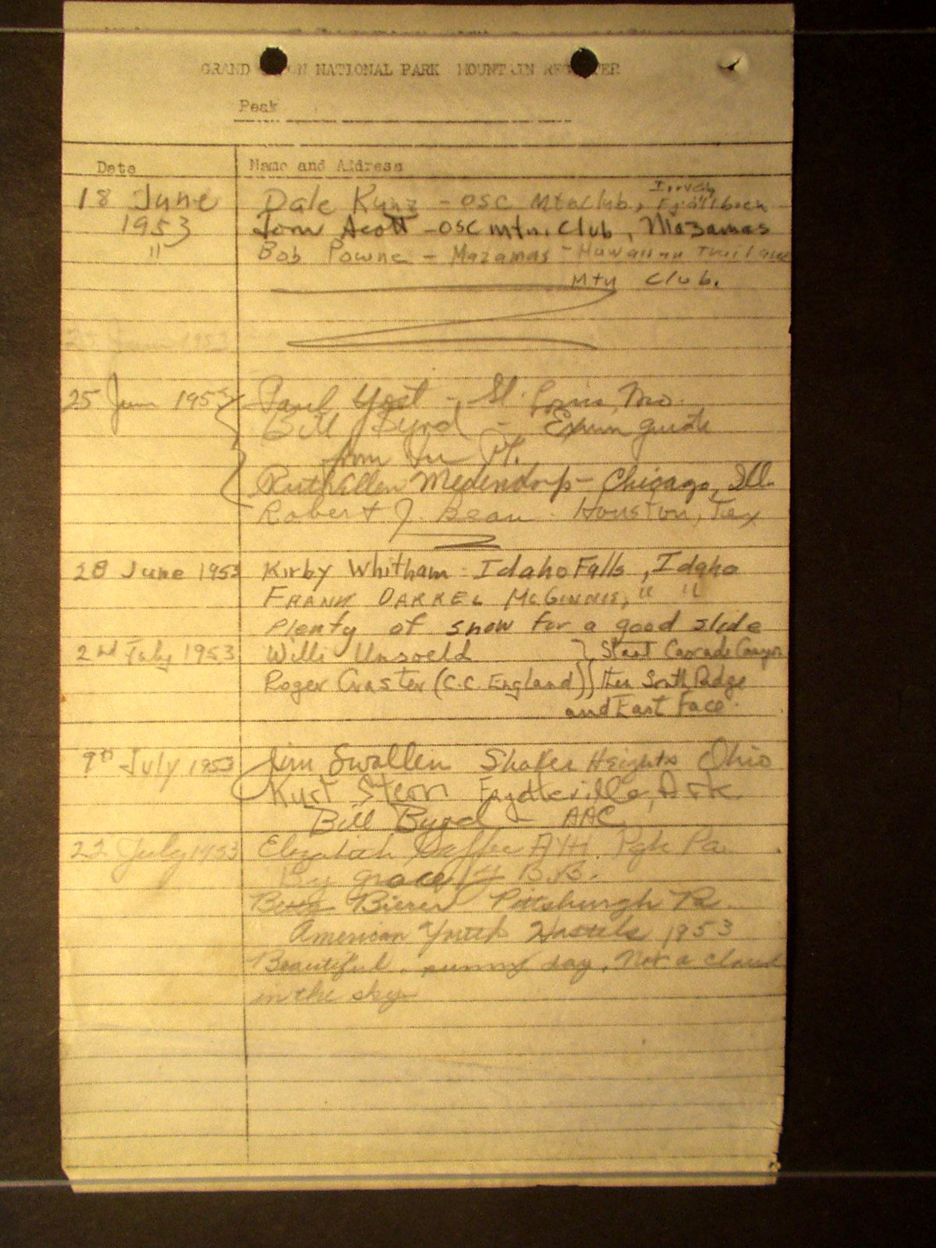 GRAND TETON NATIONAL PARK MOUNTAIN REGISTER
Peak
Date Name and Address
18 June Dale Kunz - OSC Mtn Club,
1953 Tom Scott - OSC mtn. Club, Mazamas
" Bob Powne - Mazamas - Hawaiian Trail and
Mtn Club.
25 June 1953
25 June 1953 Paul Yost - St. Louis, Mo.
Bill Byrd - Exum guide
from Pt.
Ruth Allen Medendorp - Chicago, Ill.
Robert J. Bean - Houston, Tex
28 June 1953 Kirby Whitham - Idaho Falls, Idaho
FRANK DARREL McGINNIS, " "
Plenty of snow for a good slide
2nd July 1953 Willi Unsoeld } Start Cascade Canyon
Roger Craster (C.C. England) } then South Ridge
and East Face.
9th July 1953 Jim Swallen Shaker Heights Ohio
Kurt Stern Fayetteville, Ark.
Bill Byrd - AAC
22 July 1953 Elizabeth AYH. Pgh Pa.
By grace of B.B.
Bierer Pittsburgh Pa.
American Youth Hostels 1953
Beautiful, sunny day. Not a cloud
in the sky